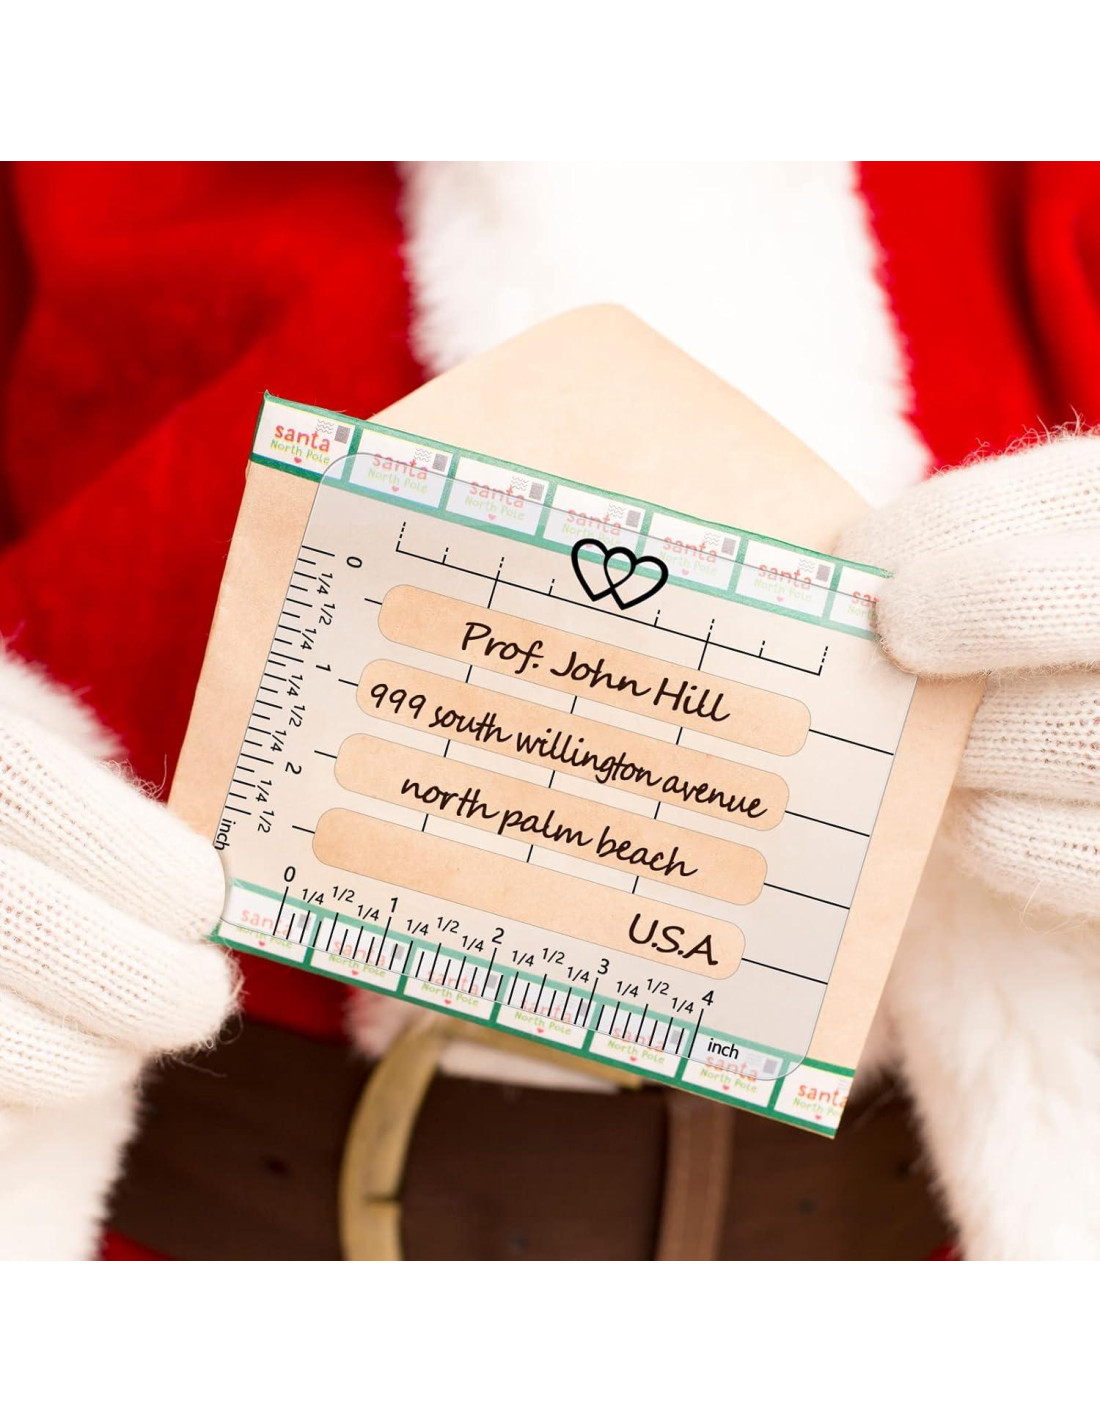 santa santa santa santa santa santa san
North Pole North Pole North Pole North Pole North Pole North Pole
0 1/4 1/2 1/4 1 1/4 1/2 1/4 2 1/4 1/2 inch
Prof. John Hill
999 south willington avenue
north palm beach
U.S.A
0 1/4 1/2 1/4 1 1/4 1/2 1/4 2 1/4 1/2 1/4 3 1/4 1/2 1/4 4 inch
santa santa santa santa santa santa santa
North Pole North Pole North Pole North Pole North Pole